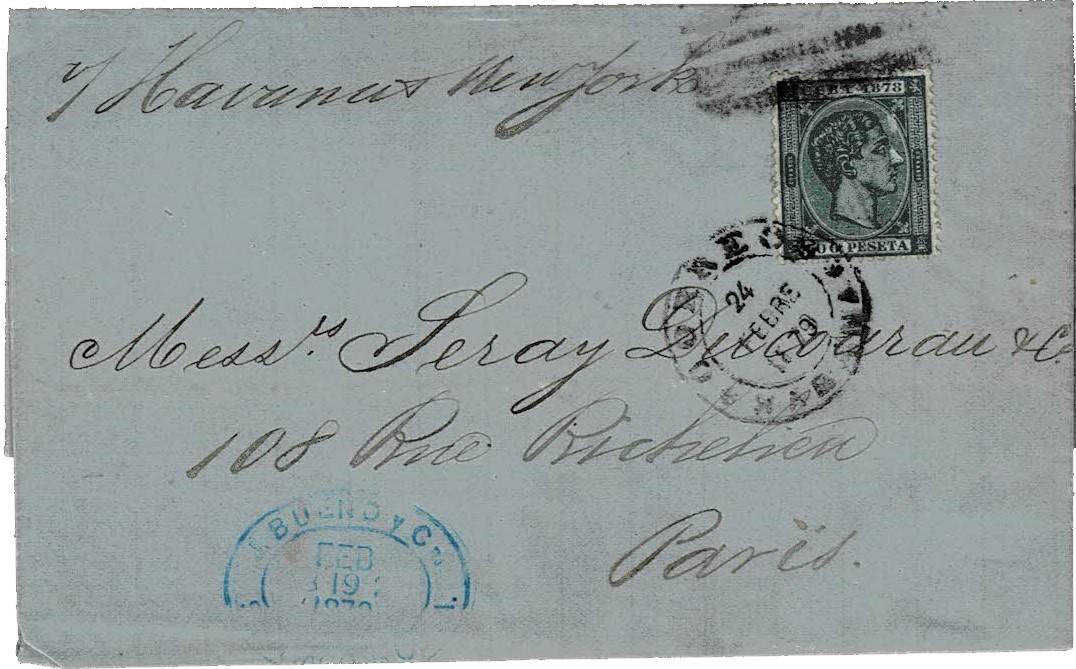 v/ Havana & New York
CUBA 1878
PESETA
24
FEBRE
1879
Mess.rs Seray Ducourau & C.
108 Rue Richelieu
Paris.
J. BUENO Y Ca.
FEB
19
1879